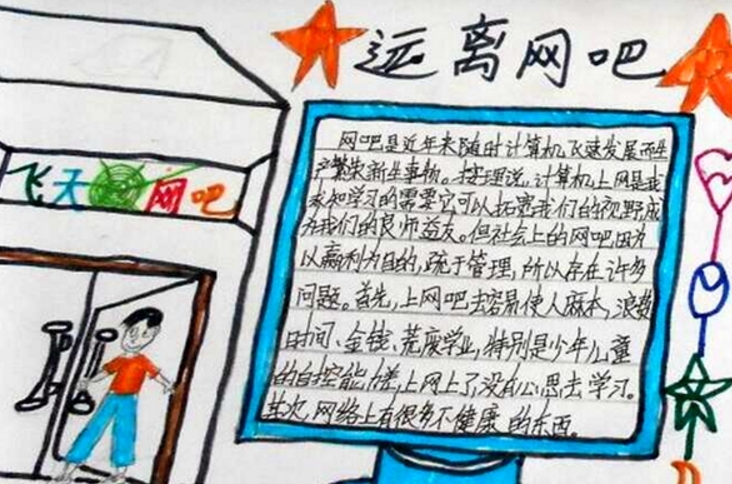 远离网吧
飞天网吧
网吧是近年来随时计算机飞速发展而生
产繁荣新生事物。按理说，计算机上网是我
求知学习的需要它可以拓宽我们的视野成
为我们的良师益友。但社会上的网吧因为
以赢利为目的，疏于管理，所以存在许多
问题。首先，上网吧去容易使人麻木，浪费
时间、金钱、荒废学业，特别是少年儿童
的自控能差，上网上了，没有心思去学习。
其次，网络上有很多不健康的东西。